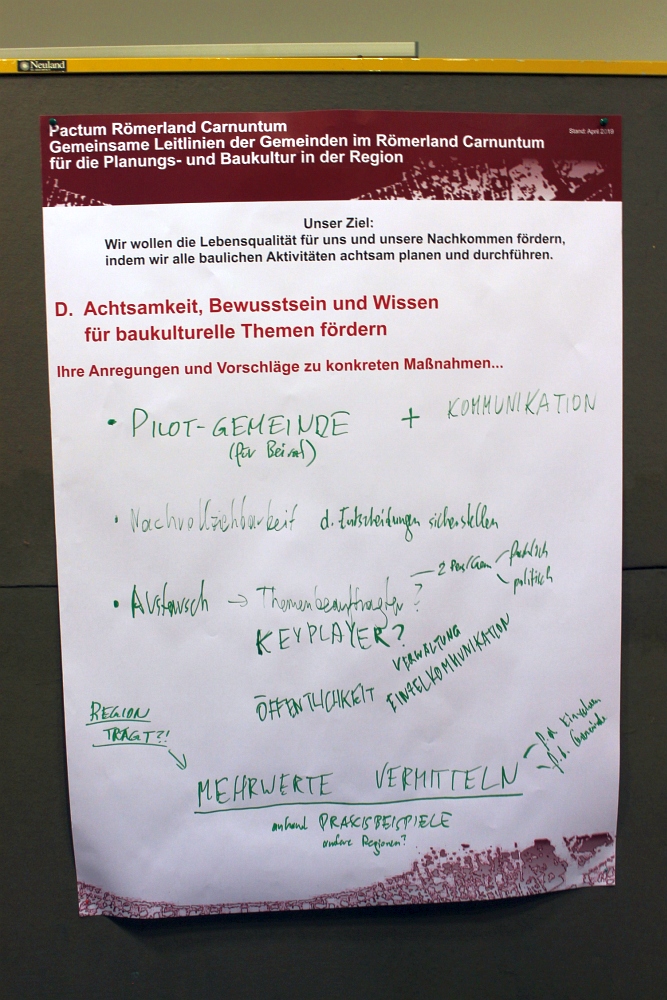 Neuland
Pactum Römerland Carnuntum
Stand: April 2019
Gemeinsame Leitlinien der Gemeinden im Römerland Carnuntum
für die Planungs- und Baukultur in der Region
Unser Ziel:
Wir wollen die Lebensqualität für uns und unsere Nachkommen fördern,
indem wir alle baulichen Aktivitäten achtsam planen und durchführen.
D. Achtsamkeit, Bewusstsein und Wissen
für baukulturelle Themen fördern
Ihre Anregungen und Vorschläge zu konkreten Maßnahmen...
• PILOT-GEMEINDE + KOMMUNIKATION
(für Beirat)
• Nachvollziehbarkeit d. Entscheidungen sicherstellen
• Austausch → Themenbeauftragten?
2 Pers/Gem
fachlich
politisch
KEYPLAYER?
VERWALTUNG
ÖFFENTLICHKEIT EINZELKOMMUNIKATION
REGION
TRÄGT?!
MEHRWERTE VERMITTELN
f. d. Einzelnen
f. d. Gemeinde
anhand PRAXISBEISPIELE
andere Regionen?